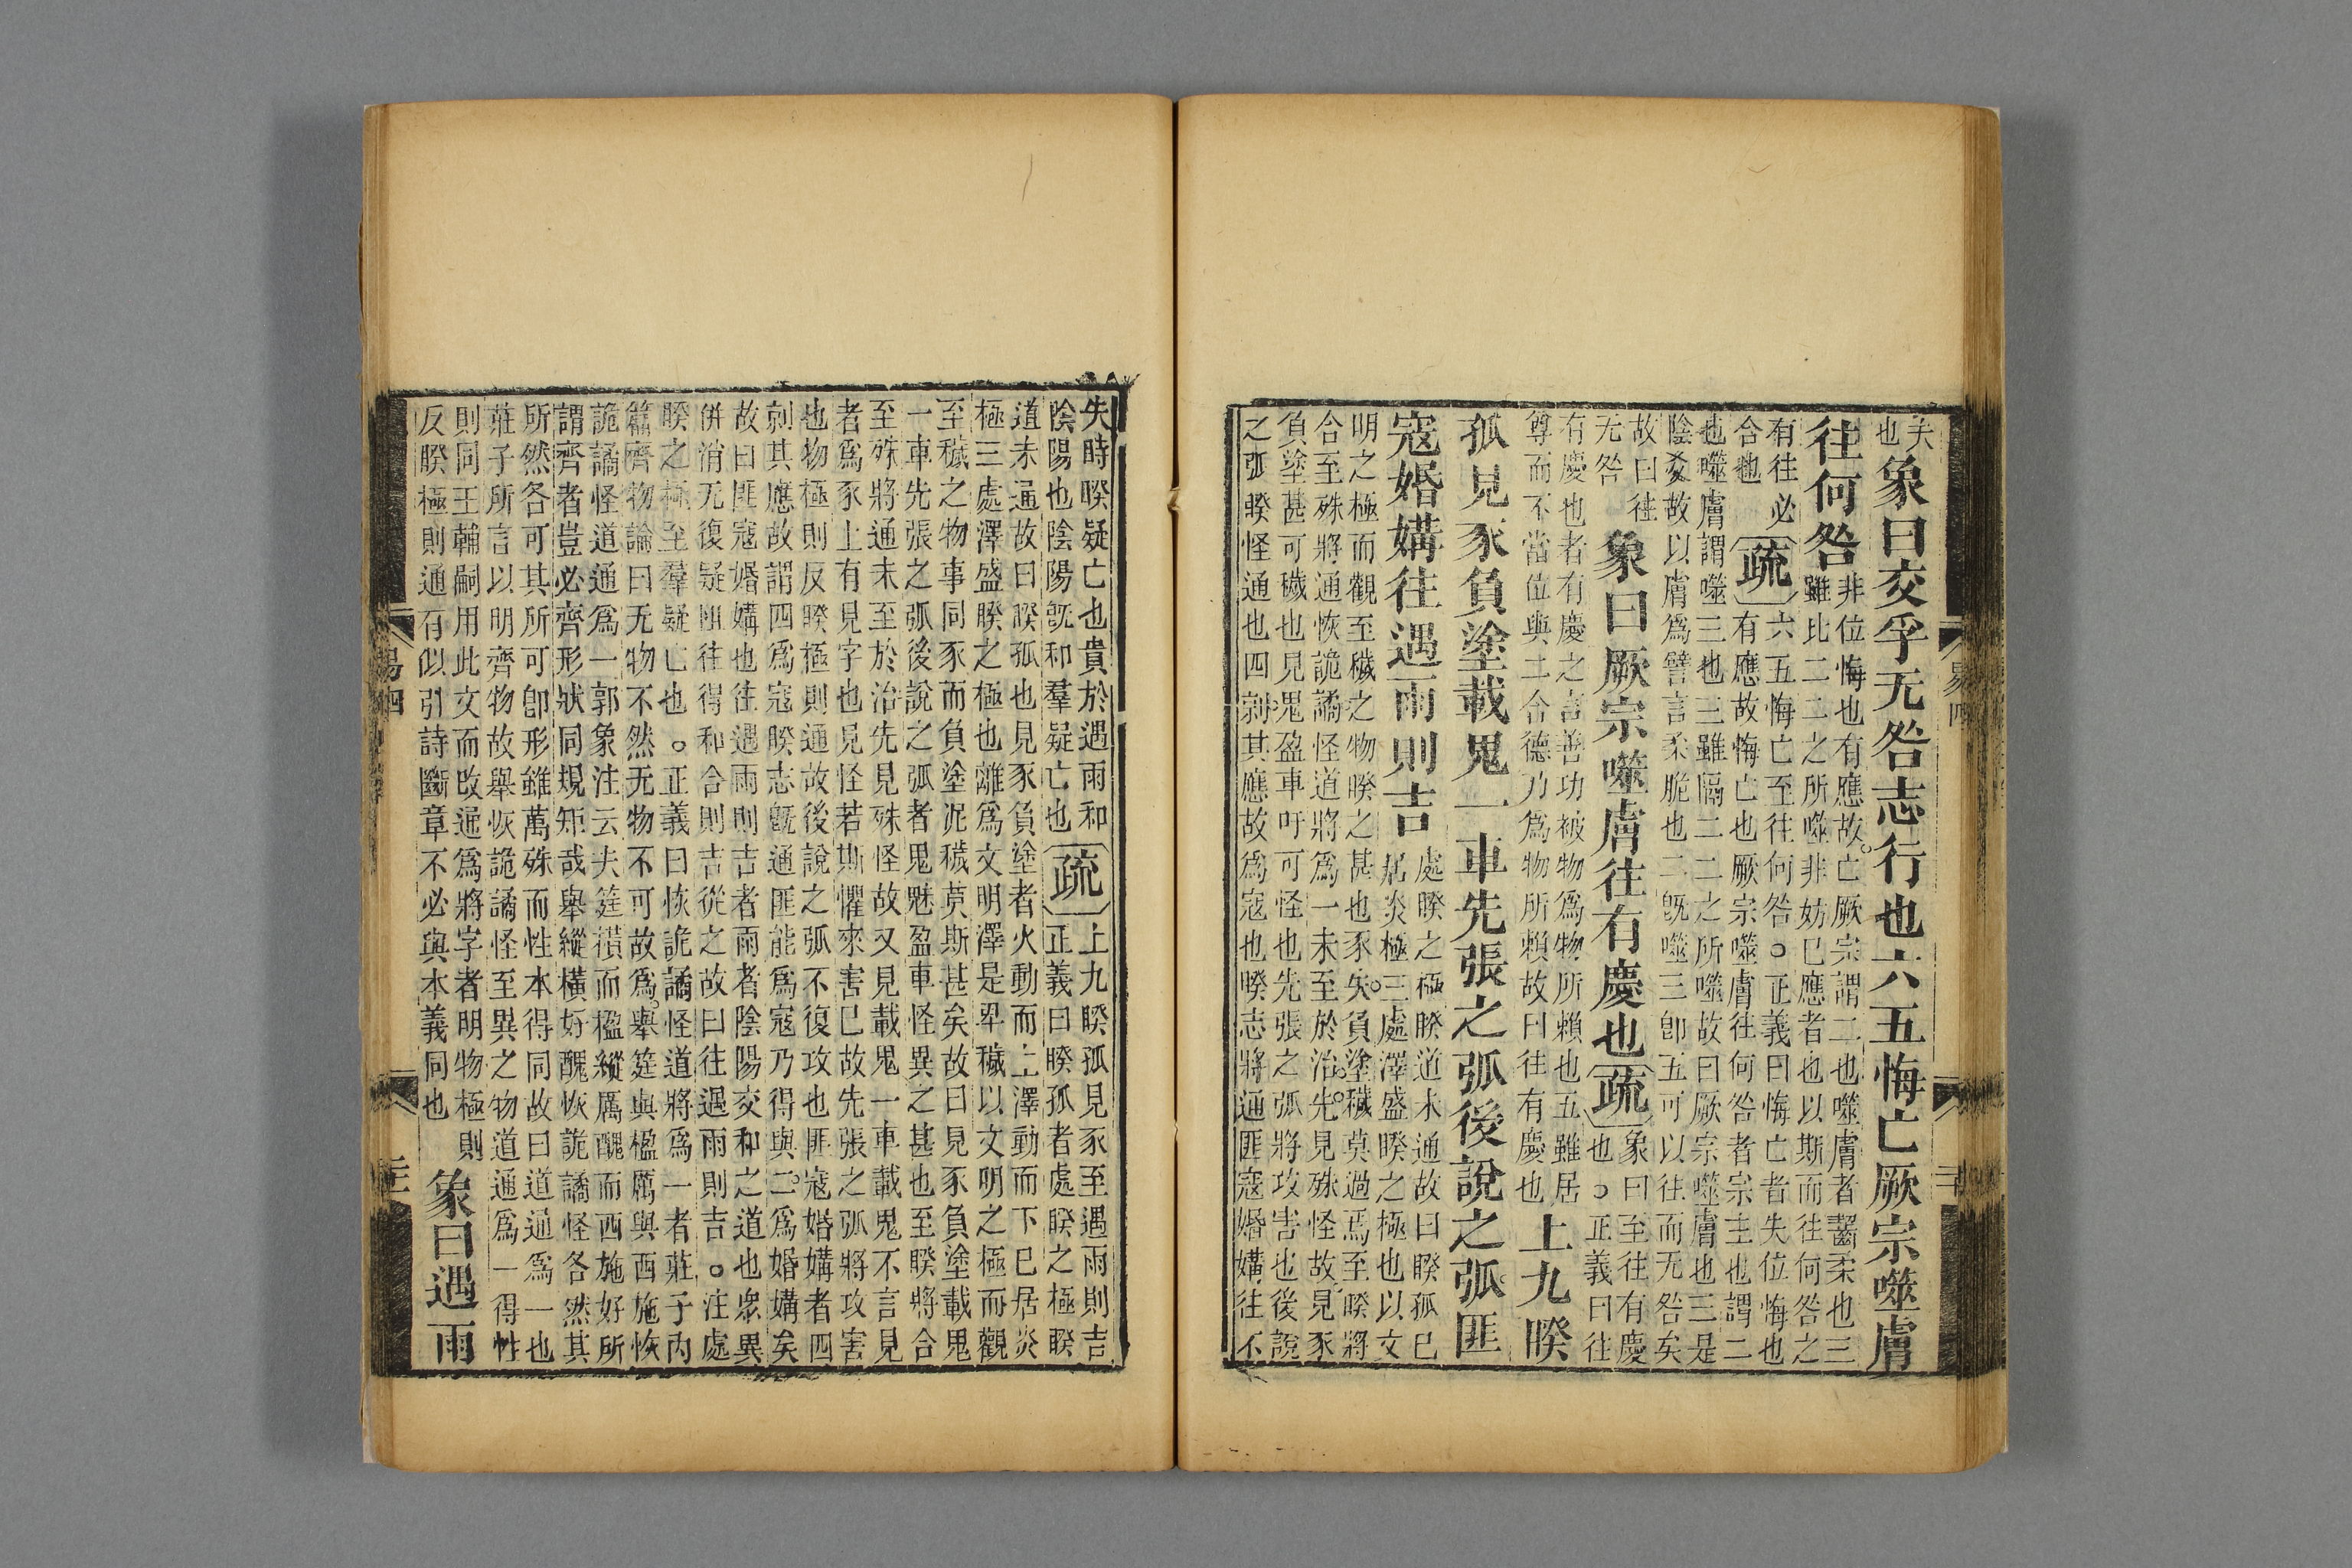 夫
也
象曰交孚无咎志行也六五悔亡厥宗噬膚
往何咎
非位悔也有應故亡厥宗謂二也噬膚者齧柔也三
雖比二二之所噬非妨已應者也以斯而往何咎之
有往必
合也
疏
六五悔亡至往何咎○正義曰悔亡者失位悔也
有應故悔亡也厥宗噬膚往何咎者宗主也謂二
也噬膚謂噬三也三雖隔二二之所噬故曰厥宗噬膚也三是
陰爻故以膚爲譬言柔脆也二旣噬三卽五可以往而无咎矣
故曰往
无咎
象曰厥宗噬膚往有慶也
疏
象曰至往有慶
也○正義曰往
有慶也者有慶之言善功被物爲物所賴也五雖居
尊而不當位與二合德乃爲物所賴故曰往有慶也
上九睽
孤見豕負塗載鬼一車先張之弧後說之弧匪
寇婚媾往遇雨則吉
處睽之極睽道未通故曰睽孤已
居炎極三處澤盛睽之極也以文
明之極而觀至穢之物睽之甚也豕矣負塗穢莫過焉至睽將
合至殊將通恢詭譎怪道將爲一未至於治先見殊怪故見豕
負塗甚可穢也見鬼盈車吁可怪也先張之弧將攻害也後說
之弧睽怪通也四剠其應故爲寇也睽志將通匪寇婚媾往不
易四
失時睽疑亡也貴於遇雨和
陰陽也陰陽旣和羣疑亡也
疏
上九睽孤見豕至遇雨則吉
正義曰睽孤者處睽之極睽
道未通故曰睽孤也見豕負塗者火動而上澤動而下已居炎
極三處澤盛睽之極也離爲文明澤是卑穢以文明之極而觀
至穢之物事同豕而負塗泥穢莫斯甚矣故曰見豕負塗載鬼
一車先張之弧後說之弧者鬼魅盈車怪異之甚也至睽將合
至殊將通未至於治先見殊怪故又見載鬼一車載鬼不言見
者爲豕上有見字也見怪若斯懼來害已故先張之弧將攻害
也物極則反睽極則通故後說之弧不復攻也匪寇婚媾者四
剠其應故謂四爲寇睽志旣通匪能爲寇乃得與二爲婚媾矣
故曰匪寇婚媾也往遇雨則吉者雨者陰陽交和之道也衆異
併消无復疑阻往得和合則吉從之故曰往遇雨則吉○注處
睽之極至羣疑亡也○正義曰恢詭譎怪道將爲一者莊子內
篇齊物論曰无物不然无物不可故爲舉筳與楹厲與西施恢
詭譎怪道通爲一郭象注云夫筳橫而楹縱厲醜而西施好所
謂齊者豈必齊形狀同規矩哉舉縱橫好醜恢詭譎怪各然其
所然各可其所可卽形雖萬殊而性本得同故曰道通爲一也
莊子所言以明齊物故舉恢詭譎怪至異之物道通爲一得性
則同王輔嗣用此文而改通爲將字者明物極則
反睽極則通有似引詩斷章不必與本義同也
象曰遇雨
易四